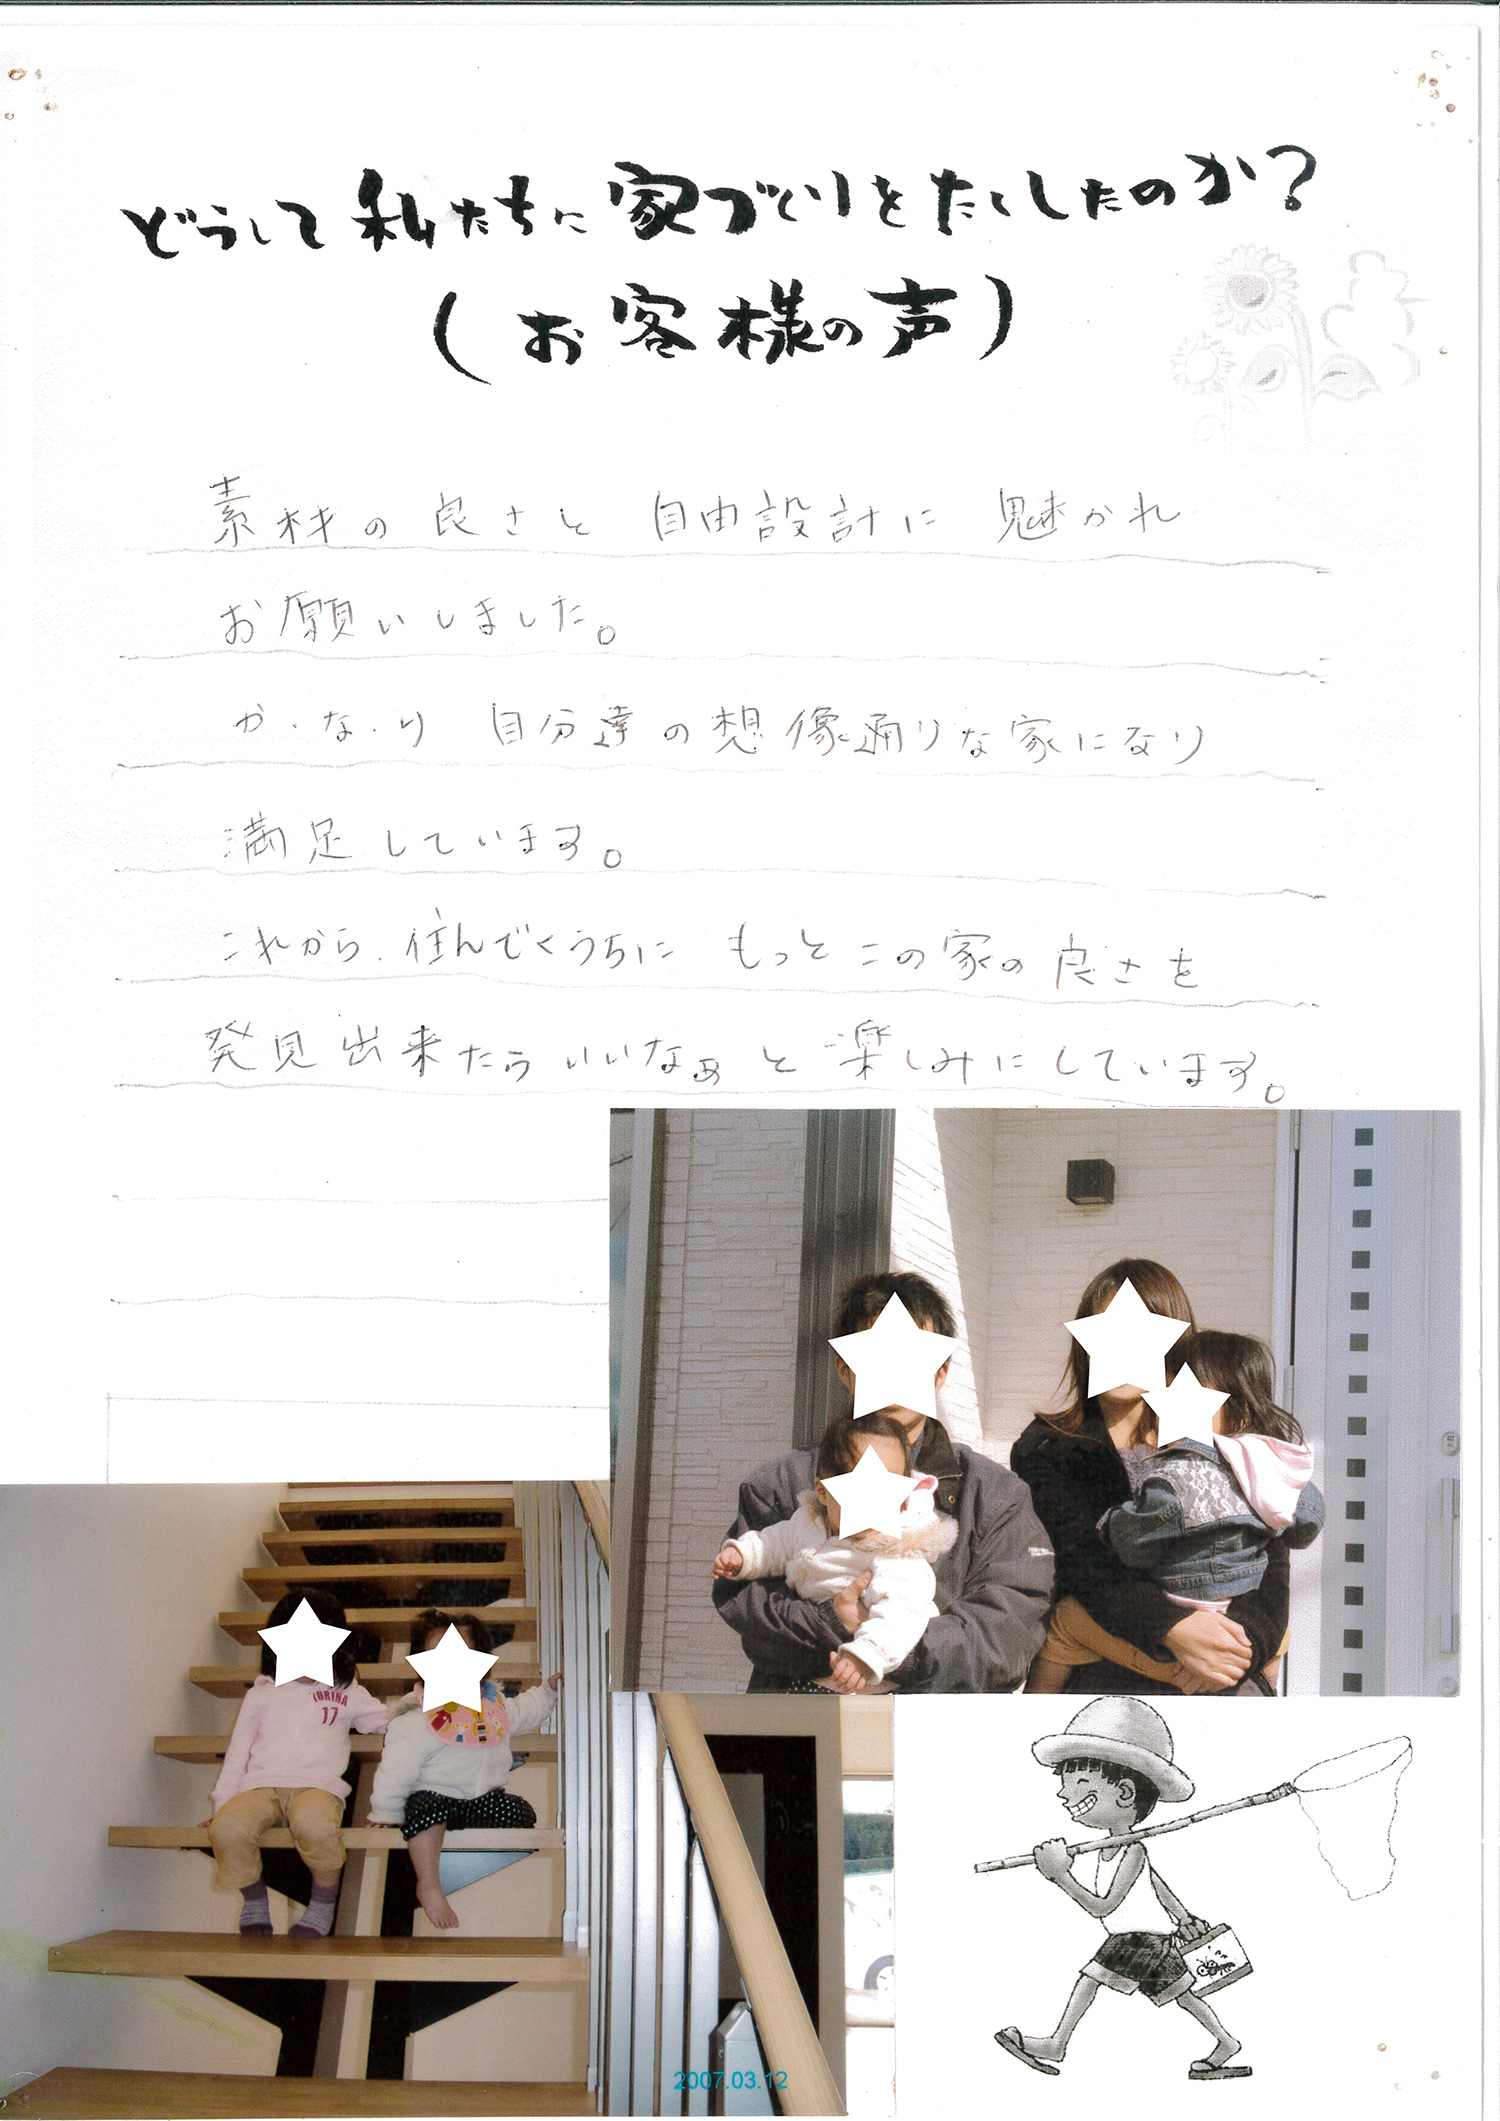 どうして私たちに家づくりをたくしたのか?
(お客様の声)
素材の良さと 自由設計に 魅かれ
お願いしました。
か・な・り 自分達の想像通りな家になり
満足しています。
これから、住んでくうちに もっと この家の良さを
発見出来たらいいなぁ と 楽しみにしています。
17
2007.03.12